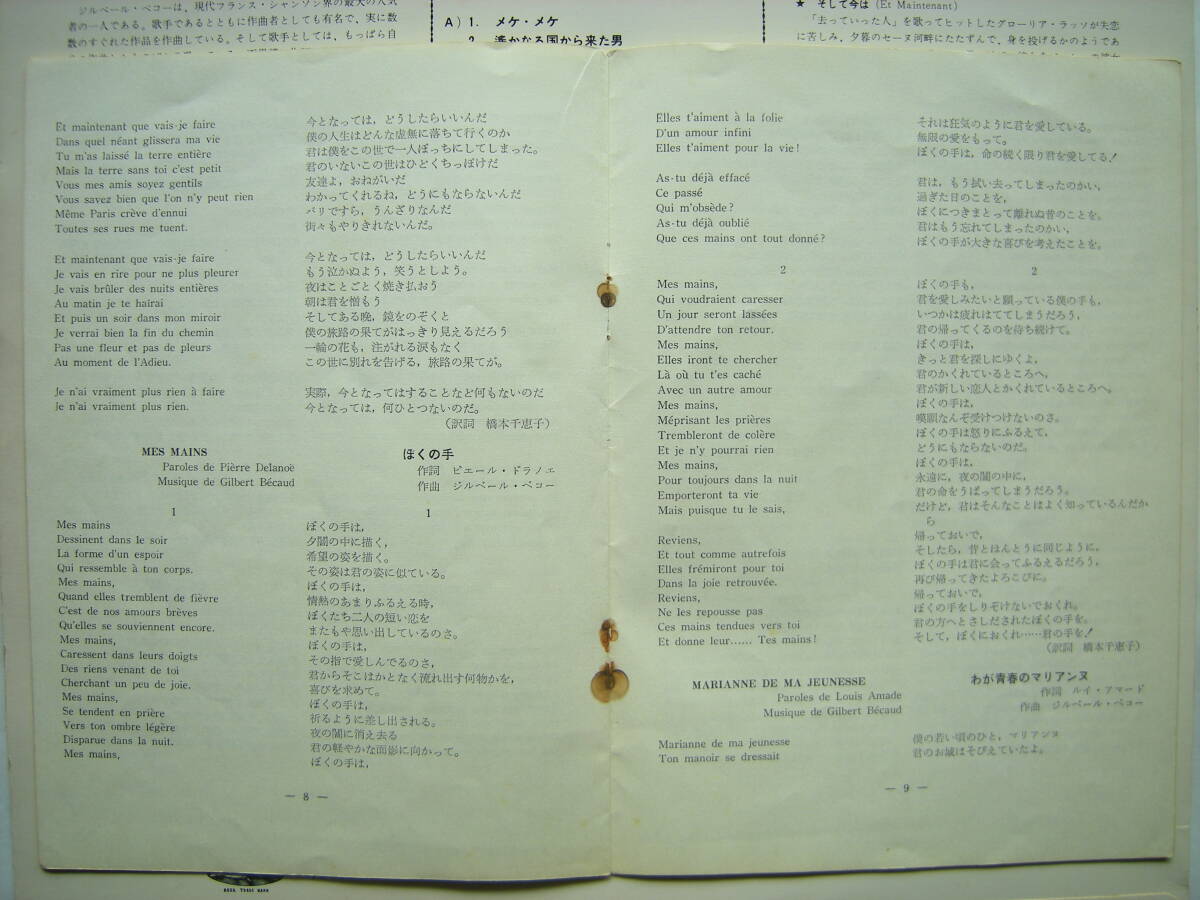 ジルベール・ベコーは，現代フランス・シャンソン界の最大の人気
者の一人である。歌手であるとともに作曲者としても有名で，実に数
数のすぐれた作品を作曲している。そして歌手としては，もっぱら自
A) 1. メケ・メケ
2. 遙かなる国から来た男
★ そして今は (Et Maintenant)
「去っていった人」を歌ってヒットしたグローリア・ラッソが失恋
に苦しみ，夕暮のセーヌ河畔にたたずんで，身を投げるかのようであ
Et maintenant que vais-je faire
Dans quel néant glissera ma vie
Tu m'as laissé la terre entière
Mais la terre sans toi c'est petit
Vous mes amis soyez gentils
Vous savez bien que l'on n'y peut rien
Même Paris crève d'ennui
Toutes ses rues me tuent.
Et maintenant que vais-je faire
Je vais en rire pour ne plus pleurer
Je vais brûler des nuits entières
Au matin je te haïrai
Et puis un soir dans mon miroir
Je verrai bien la fin du chemin
Pas une fleur et pas de pleurs
Au moment de l'Adieu.
Je n'ai vraiment plus rien à faire
Je n'ai vraiment plus rien.
今となっては，どうしたらいいんだ
僕の人生はどんな虚無に落ちて行くのか
君は僕をこの世で一人ぼっちにしてしまった。
君のいないこの世はひどくちっぽけだ
友達よ，おねがいだ
わかってくれるね，どうにもならないんだ
パリですら，うんざりなんだ
街々もやりきれないんだ。
今となっては，どうしたらいいんだ
もう泣かぬよう，笑うとしよう。
夜はことごとく焼き払おう
朝は君を憎もう
そしてある晩，鏡をのぞくと
僕の旅路の果てがはっきり見えるだろう
一輪の花も，注がれる涙もなく
この世に別れを告げる，旅路の果てが。
実際，今となってはすることなど何もないのだ
今となっては，何ひとつないのだ。
（訳詞 橋本千恵子）
MES MAINS
Paroles de Pièrre Delanoë
Musique de Gilbert Bécaud
ぼくの手
作詞 ピエール・ドラノエ
作曲 ジルベール・ベコー
1
Mes mains
Dessinent dans le soir
La forme d'un espoir
Qui ressemble à ton corps.
Mes mains,
Quand elles tremblent de fièvre
C'est de nos amours brèves
Qu'elles se souviennent encore.
Mes mains,
Caressent dans leurs doigts
Des riens venant de toi
Cherchant un peu de joie.
Mes mains,
Se tendent en prière
Vers ton ombre légère
Disparue dans la nuit.
Mes mains,
1
ぼくの手は，
夕闇の中に描く，
希望の姿を描く。
その姿は君の姿に似ている。
ぼくの手は，
情熱のあまりふるえる時，
ぼくたち二人の短い恋を
またもや思い出しているのさ。
ぼくの手は，
その指で愛しんでるのさ，
君からそこはかとなく流れ出す何物かを，
喜びを求めて。
ぼくの手は，
祈るように差し出される。
夜の闇に消え去る
君の軽やかな面影に向かって。
ぼくの手は，
— 8 —
Elles t'aiment à la folie
D'un amour infini
Elles t'aiment pour la vie!
As-tu déjà effacé
Ce passé
Qui m'obsède?
As-tu déjà oublié
Que ces mains ont tout donné?
2
Mes mains,
Qui voudraient caresser
Un jour seront lassées
D'attendre ton retour.
Mes mains,
Elles iront te chercher
Là où tu t'es caché
Avec un autre amour
Mes mains,
Méprisant les prières
Trembleront de colère
Et je n'y pourrai rien
Mes mains,
Pour toujours dans la nuit
Emporteront ta vie
Mais puisque tu le sais,
Reviens,
Et tout comme autrefois
Elles frémiront pour toi
Dans la joie retrouvée.
Reviens,
Ne les repousse pas
Ces mains tendues vers toi
Et donne leur...... Tes mains!
それは狂気のように君を愛している。
無限の愛をもって。
ぼくの手は，命の続く限り君を愛してる！
君は，もう拭い去ってしまったのかい，
過ぎた日のことを，
ぼくにつきまとって離れぬ昔のことを。
君はもう忘れてしまったのかい，
ぼくの手が大きな喜びを考えたことを。
2
ぼくの手も，
君を愛しみたいと願っている僕の手も，
いつかは疲れはててしまうだろう，
君の帰ってくるのを待ち続けて。
ぼくの手は，
きっと君を探しにゆくよ，
君のかくれているところへ，
君が新しい恋人とかくれているところへ。
ぼくの手は，
嘆願なんぞ受けつけないのさ。
ぼくの手は怒りにふるえて，
どうにもならないのだ。
ぼくの手は，
永遠に，夜の闇の中に，
君の命をうばってしまうだろう。
だけど，君はそんなことはよく知っているんだか
ら
帰っておいで，
そしたら，昔とほんとうに同じように，
ぼくの手は君に会ってふるえるだろう，
再び帰ってきたよろこびに。
帰っておいで，
ぼくの手をしりぞけないでおくれ。
君の方へとさしだされたぼくの手を。
そして，ぼくにおくれ……君の手を！
（訳詞 橋本千恵子）
MARIANNE DE MA JEUNESSE
Paroles de Louis Amade
Musique de Gilbert Bécaud
わが青春のマリアンヌ
作詞 ルイ・アマード
作曲 ジルベール・ベコー
Marianne de ma jeunesse
Ton manoir se dressait
僕の若い頃のひと，マリアンヌ
君のお城はそびえていたよ。
— 9 —